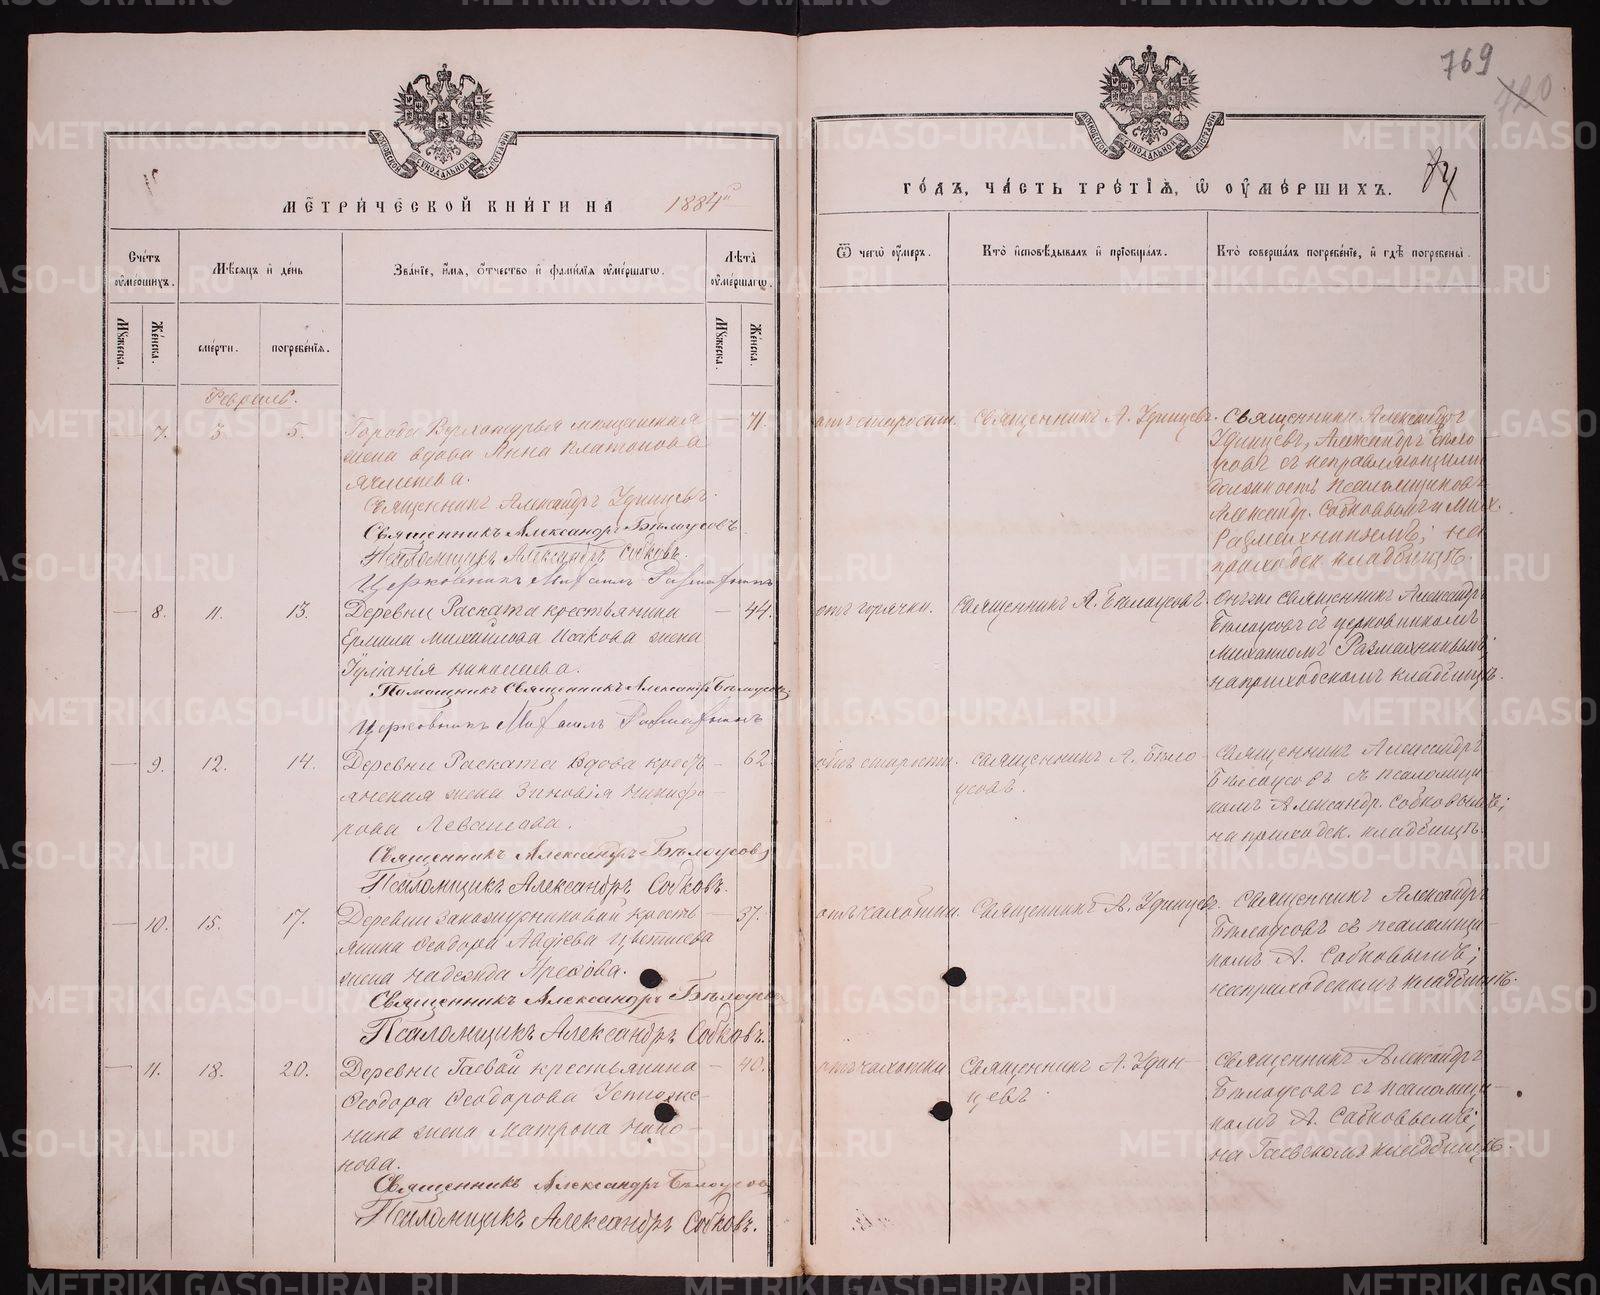 769
МЕТРИЧЕСКОЙ КНИГИ НА 1884й
ГОДЪ, ЧАСТЬ ТРЕТІЯ, Ѿ ОУМЕРШИХЪ.
Счетъ оумершихъ.
Мѣсяцъ и день
Званіе, имя, отчество и фамилія оумершагѡ.
Лѣта оумершагѡ.
Ѿ чегѡ оумеръ.
Кто исповѣдывалъ и пріобщалъ.
Кто совершалъ погребеніе, и гдѣ погребены.
Мужеска.
Женска.
смерти.
погребенія.
Мужеска.
Женска.
Февраль.
— 7. 3. 5. Города Верхотурья мѣщанская — 71.
жена вдова Анна Платонова
Священникъ Александръ Удинцевъ.
Священникъ Александръ Бѣлоусовъ
Псаломщикъ Александръ Собковъ.
Церковникъ Михаилъ Размахнинъ
отъ старости. Священникъ А. Удинцевъ.
Священники Александръ
Удинцевъ, Александръ Бѣло
усовъ съ исправляющими
должность псаломщиковъ
Александр. Собковымъ и Мих.
Размахнинымъ; на
приходск. кладбищѣ.
— 8. 11. 13. Деревни Раската крестьянина — 44.
Ермила Михайлова Исакова жена
Іуліанія
Помощникъ Священникъ Александръ Бѣлоусовъ
Церковникъ Михаилъ Размахнинъ
отъ горячки. Священникъ А. Бѣлоусовъ.
Онъ же священникъ Александръ
Бѣлоусовъ съ церковникомъ
Михаиломъ Размахнинымъ
на приходскомъ кладбищѣ.
— 9. 12. 14. Деревни Раската вдова кресть — 62.
янская жена Зиновія Никифо-
рова Левашова.
Священникъ Александръ Бѣлоусовъ
Псаломщикъ Александръ Собковъ.
отъ старости. Священникъ А. Бѣло
усовъ.
Священникъ Александръ
Бѣлоусовъ съ псаломщи
комъ Александр. Собковымъ;
на приходск. кладбищѣ.
— 10. 15. 17. Деревни кресть — 37.
янина Ѳеодора Авдіева
жена Надежда
Священникъ Александръ Бѣлоусовъ
Псаломщикъ Александръ Собковъ.
отъ чахотки. Священникъ А. Удинцевъ.
Священникъ Александръ
Бѣлоусовъ съ псаломщи-
комъ А. Собковымъ;
на приходскомъ кладбищѣ.
— 11. 18. 20. Деревни Гаевой крестьянина — 40.
Ѳеодора Ѳеодорова Устюжа-
нина жена Матрона
нова.
Священникъ Александръ Бѣлоусовъ
Псаломщикъ Александръ Собковъ.
отъ чахотки. Священникъ А. Удин-
цевъ.
Священникъ Александръ
Бѣлоусовъ съ псаломщи-
комъ А. Собковымъ;
на Гаевскомъ кладбищѣ.
METRIKI.GASO-URAL.RU